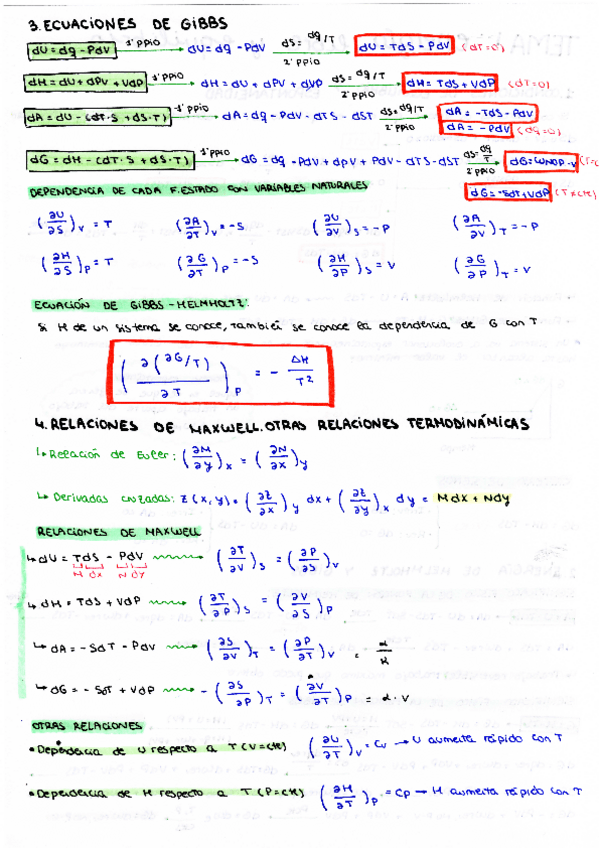 3. ECUACIONES DE GIBBS
dU = dq - PdV 1º ppio → dU = dq - PdV dS = dq/T 2º ppio → dU = TdS - PdV (dT=0)
dH = dU + dPV + VdP 1º ppio → dH = dU + dPV + dVP dS = dq/T 2º ppio → dH = TdS + VdP (dT=0)
dA = dU - (dT·S + dS·T) 1º ppio → dA = dq - PdV - dTS - dST dS = dq/T 2º ppio → dA = -TdS - PdV
dA = -PdV (dq=0)
dG = dH - (dT·S + dS·T) 1º ppio → dG = dq - PdV + dPV + PdV - dTS - dST dS = dq/T 2º ppio → dG =
DEPENDENCIA DE CADA F.ESTADO CON VARIABLES NATURALES dG = -SdT + VdP (T ≠ cte)
(∂U/∂S)V = T (∂A/∂T)V = -S (∂U/∂V)S = -P (∂A/∂V)T = -P
(∂H/∂S)P = T (∂G/∂T)P = -S (∂H/∂P)S = V (∂G/∂P)T = V
ECUACIÓN DE GIBBS - HELMHOLTZ:
Si H de un sistema se conoce, también se conoce la dependencia de G con T
(∂(∂G/T)/∂T)P = - ΔH/T²
4. RELACIONES DE MAXWELL. OTRAS RELACIONES TERMODINÁMICAS
↳ Relación de Euler: (∂M/∂y)x = (∂N/∂x)y
↳ Derivadas cruzadas: z(x,y) = (∂z/∂x)y dx + (∂z/∂y)x dy = Mdx + Ndy
RELACIONES DE MAXWELL
↳ dU = TdS - PdV → (∂T/∂V)S = (∂P/∂S)V
M dx N dy
↳ dH = TdS + VdP → (∂T/∂P)S = (∂V/∂S)P
↳ dA = -SdT - PdV → (∂S/∂V)T = (∂P/∂T)V = α/κ
↳ dG = -SdT + VdP → -(∂S/∂P)T = (∂V/∂T)P = α·V
OTRAS RELACIONES
• Dependencia de U respecto a T (V=cte) (∂U/∂T)V = Cv → U aumenta rápido con T
• Dependencia de H respecto a T (P=cte) (∂H/∂T)P = Cp → H aumenta rápido con T